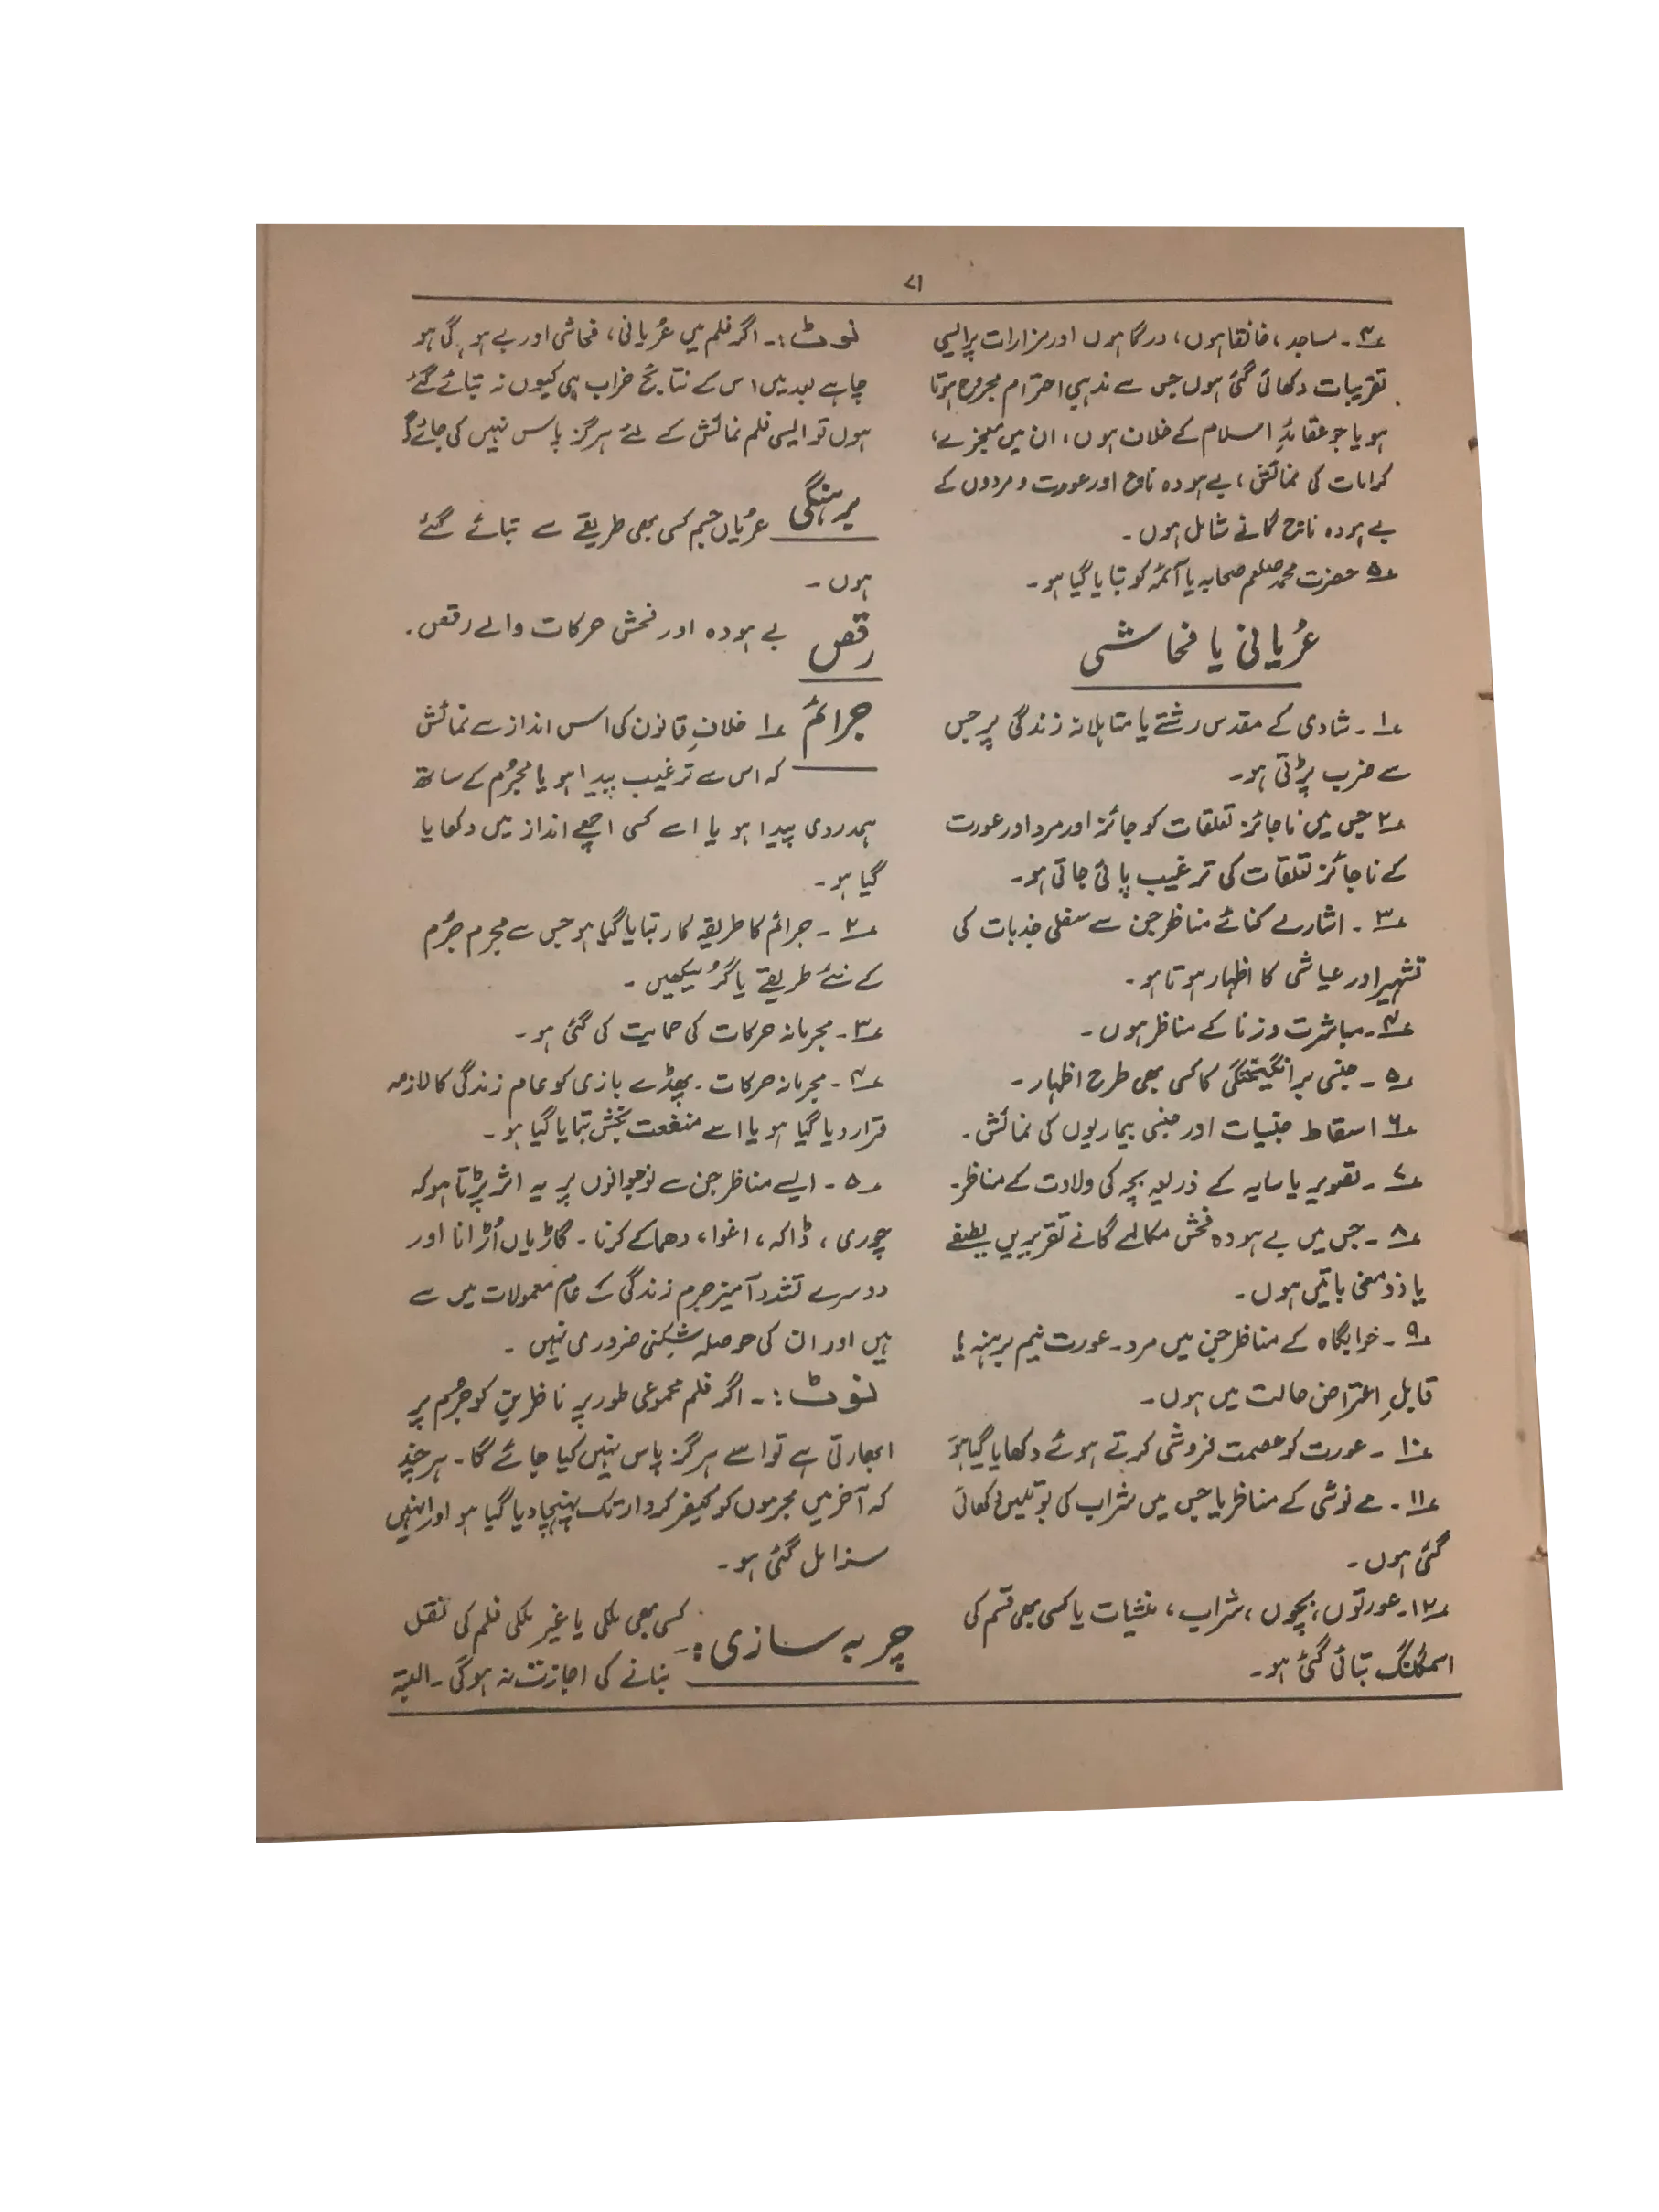 ۷۱
۴؎ ۔ مساجد، خانقاہوں، درگاہوں اور مزارات پر ایسی
تقریبات دکھائی گئی ہوں جس سے مذہبی احترام مجروح ہوتا
ہو یا جو عقائدِ اسلام کے خلاف ہوں، ان میں معجزے،
کرامات کی نمائش، بے ہودہ ناچ اور عورت و مردوں کے
بے ہودہ ناچ گانے شامل ہوں۔
۵؎ حضرت محمد صلعم صحابہ یا آئمہ کو بتایا گیا ہو۔
عُریانی یا فحاشی
۱؎ ۔ شادی کے مقدس رشتے یا متاہلانہ زندگی پر جس
سے ضرب پڑتی ہو۔
۲؎ جس میں ناجائز تعلقات کو جائز اور مرد اور عورت
کے ناجائز تعلقات کی ترغیب پائی جاتی ہو۔
۳؎ ۔ اشارے کنائے مناظر جن سے سفلی جذبات کی
تشہیر اور عیاشی کا اظہار ہوتا ہو۔
۴؎ ۔ مباشرت و زنا کے مناظر ہوں۔
۵؎ ۔ جنسی برانگیختگی کا کسی بھی طرح اظہار۔
۶؎ اسقاط جنسیات اور جنسی بیماریوں کی نمائش۔
۷؎ ۔ تصویر یا سایہ کے ذریعہ بچہ کی ولادت کے مناظر۔
۸؎ ۔ جس میں بے ہودہ فحش مکالمے گانے تقریریں لطیفے
یا ذو معنی باتیں ہوں۔
۹؎ ۔ خوابگاہ کے مناظر جن میں مرد۔ عورت نیم برہنہ یا
قابلِ اعتراض حالت میں ہوں۔
۱۰؎ ۔ عورت کو عصمت فروشی کرتے ہوئے دکھایا گیا ہو
۱۱؎ ۔ مے نوشی کے مناظر یا جس میں شراب کی بوتلیں دکھائی
گئی ہوں۔
۱۲؎ ۔ عورتوں، بچوں، شراب، منشیات یا کسی بھی قسم کی
اسمگلنگ بتائی گئی ہو۔
نوٹ:۔ اگر فلم میں عُریانی، فحاشی اور بے ہودگی ہو
چاہے بعد میں اس کے نتائج خراب ہی کیوں نہ بتائے گئے
ہوں تو ایسی فلم نمائش کے لئے ہرگز پاس نہیں کی جائے گی
برہنگی عُریاں جسم کسی بھی طریقے سے بتائے گئے
ہوں۔
رقص بے ہودہ اور فحش حرکات والے رقص۔
جرائم ۱؎ خلافِ قانون کی اس انداز سے نمائش
کہ اس سے ترغیب پیدا ہو یا مجرُم کے ساتھ
ہمدردی پیدا ہو یا اسے کسی اچھے انداز میں دکھایا
گیا ہو۔
۲؎ ۔ جرائم کا طریقہ کار بتایا گیا ہو جس سے مجرم جُرم
کے نئے طریقے یا گُر سیکھیں۔
۳؎ ۔ مجرمانہ حرکات کی حمایت کی گئی ہو۔
۴؎ ۔ مجرمانہ حرکات ۔ بھڈے بازی کو عام زندگی کا لازمہ
قرار دیا گیا ہو یا اسے منفعت بخش بتایا گیا ہو۔
۵؎ ۔ ایسے مناظر جن سے نوجوانوں پر یہ اثر پڑتا ہو کہ
چوری، ڈاکہ، اغوا، دھماکے کرنا۔ گاڑیاں اُڑانا اور
دوسرے تشدد آمیز جرم زندگی کے عام معمولات میں سے
ہیں اور ان کی حوصلہ شکنی ضروری نہیں۔
نوٹ:۔ اگر فلم مجموعی طور پر ناظرین کو جُرم پر
ابھارتی ہے تو اسے ہرگز پاس نہیں کیا جائے گا۔ ہر چند
کہ آخر میں مجرموں کو کیفر کردار تک پہنچا دیا گیا ہو اور انہیں
سزا مل گئی ہو۔
چربہ سازی:۔ کسی بھی ملکی یا غیر ملکی فلم کی نقل
بنانے کی اجازت نہ ہوگی۔ البتہ